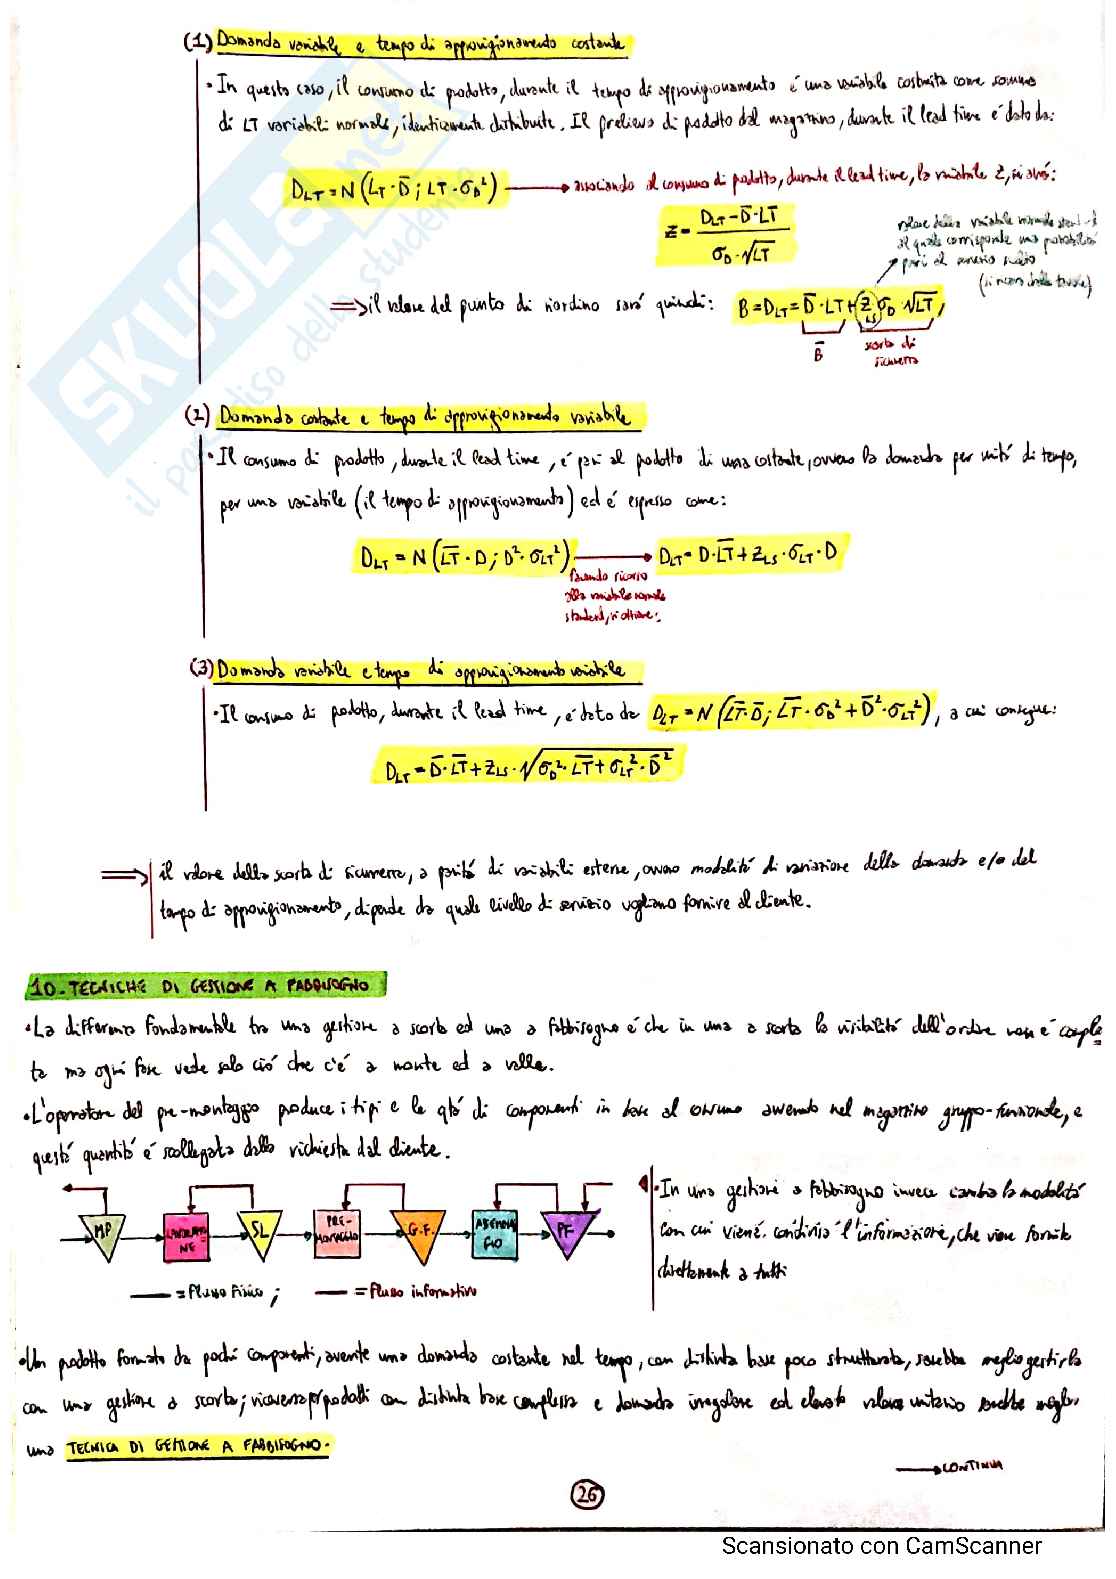 (1) Domanda variabile e tempo di approvigionamento costante
• In questo caso, il consumo di prodotto, durante il tempo di approvigionamento é una variabile costruita come somma
di LT variabili normali, identicamente distribuite. Il prelievo di prodotto dal magazzino, durante il lead time é dato da:
D_LT = N (LT · D̄ ; LT · σ_D²) → associando al consumo di prodotto, durante il lead time, la variabile Z, si avrá:
Z = (D_LT - D̄ · LT) / (σ_D · √LT)
valore della variabile normale stand.
al quale corrisponde una probabilitá
pari al servizio
(si ricava dalle tavole)
⇒ il valore del punto di riordino sará quindi: B = D_LT = D̄ · LT + Z_LS σ_D · √LT,
B̄ scorta di
sicurezza
(2) Domanda costante e tempo di approvigionamento variabile
• Il consumo di prodotto, durante il lead time, é pari al prodotto di una costante, ovvero la domanda per unitá di tempo,
per una variabile (il tempo di approvigionamento) ed é espresso come:
D_LT = N (L̄T̄ · D ; D² · σ_LT²) → D_LT = D · L̄T̄ + Z_LS · σ_LT · D
facendo ricorso
alla variabile normale
standard, si ottiene:
(3) Domanda variabile e tempo di approvigionamento variabile
• Il consumo di prodotto, durante il lead time, é dato da D_LT = N (L̄T̄ · D̄ ; L̄T̄ · σ_D² + D̄² · σ_LT²), a cui consegue:
D_LT = D̄ · L̄T̄ + Z_LS · √(σ_D² · L̄T̄ + σ_LT² · D̄²)
⇒ il valore della scorta di sicurezza, a paritá di variabili esterne, ovvero modalitá di variazione della domanda e/o del
tempo di approvigionamento, dipende da quale livello di servizio vogliamo fornire al cliente.
10. TECNICHE DI GESTIONE A FABBISOGNO
• La differenza fondamentale tra una gestione a scorta ed una a fabbisogno é che in una a scorta la visibilitá dell'ordine non é comple
ta ma ogni fase vede solo ció che c'é a monte ed a valle.
• L'operatore del pre-montaggio produce i tipi e le qtá di componenti in base al consumo avvenuto nel magazzino gruppo-funzionale, e
questá quantitá é scollegata dalla richiesta dal cliente.
MP LAVORAZIO NE SL PRE-MONTAGGIO G.F. ASSEMBLA GIO PF
— = Flusso Fisico ; — = Flusso informativo
• In una gestione a fabbisogno invece cambia la modalitá
con cui viene condivisa l'informazione, che viene fornita
direttamente a tutti
• Un prodotto formato da pochi componenti, avente una domanda costante nel tempo, con distinta base poco strutturata, sarebbe meglio gestirla
con una gestione a scorta; viceversa prodotti con distinta base complessa e domanda irregolare ed elevato valore unitario sarebbe meglio
una TECNICA DI GESTIONE A FABBISOGNO.
→ CONTINUA
26
SKUOLA.net
il paradiso dello studente
Scansionato con CamScanner